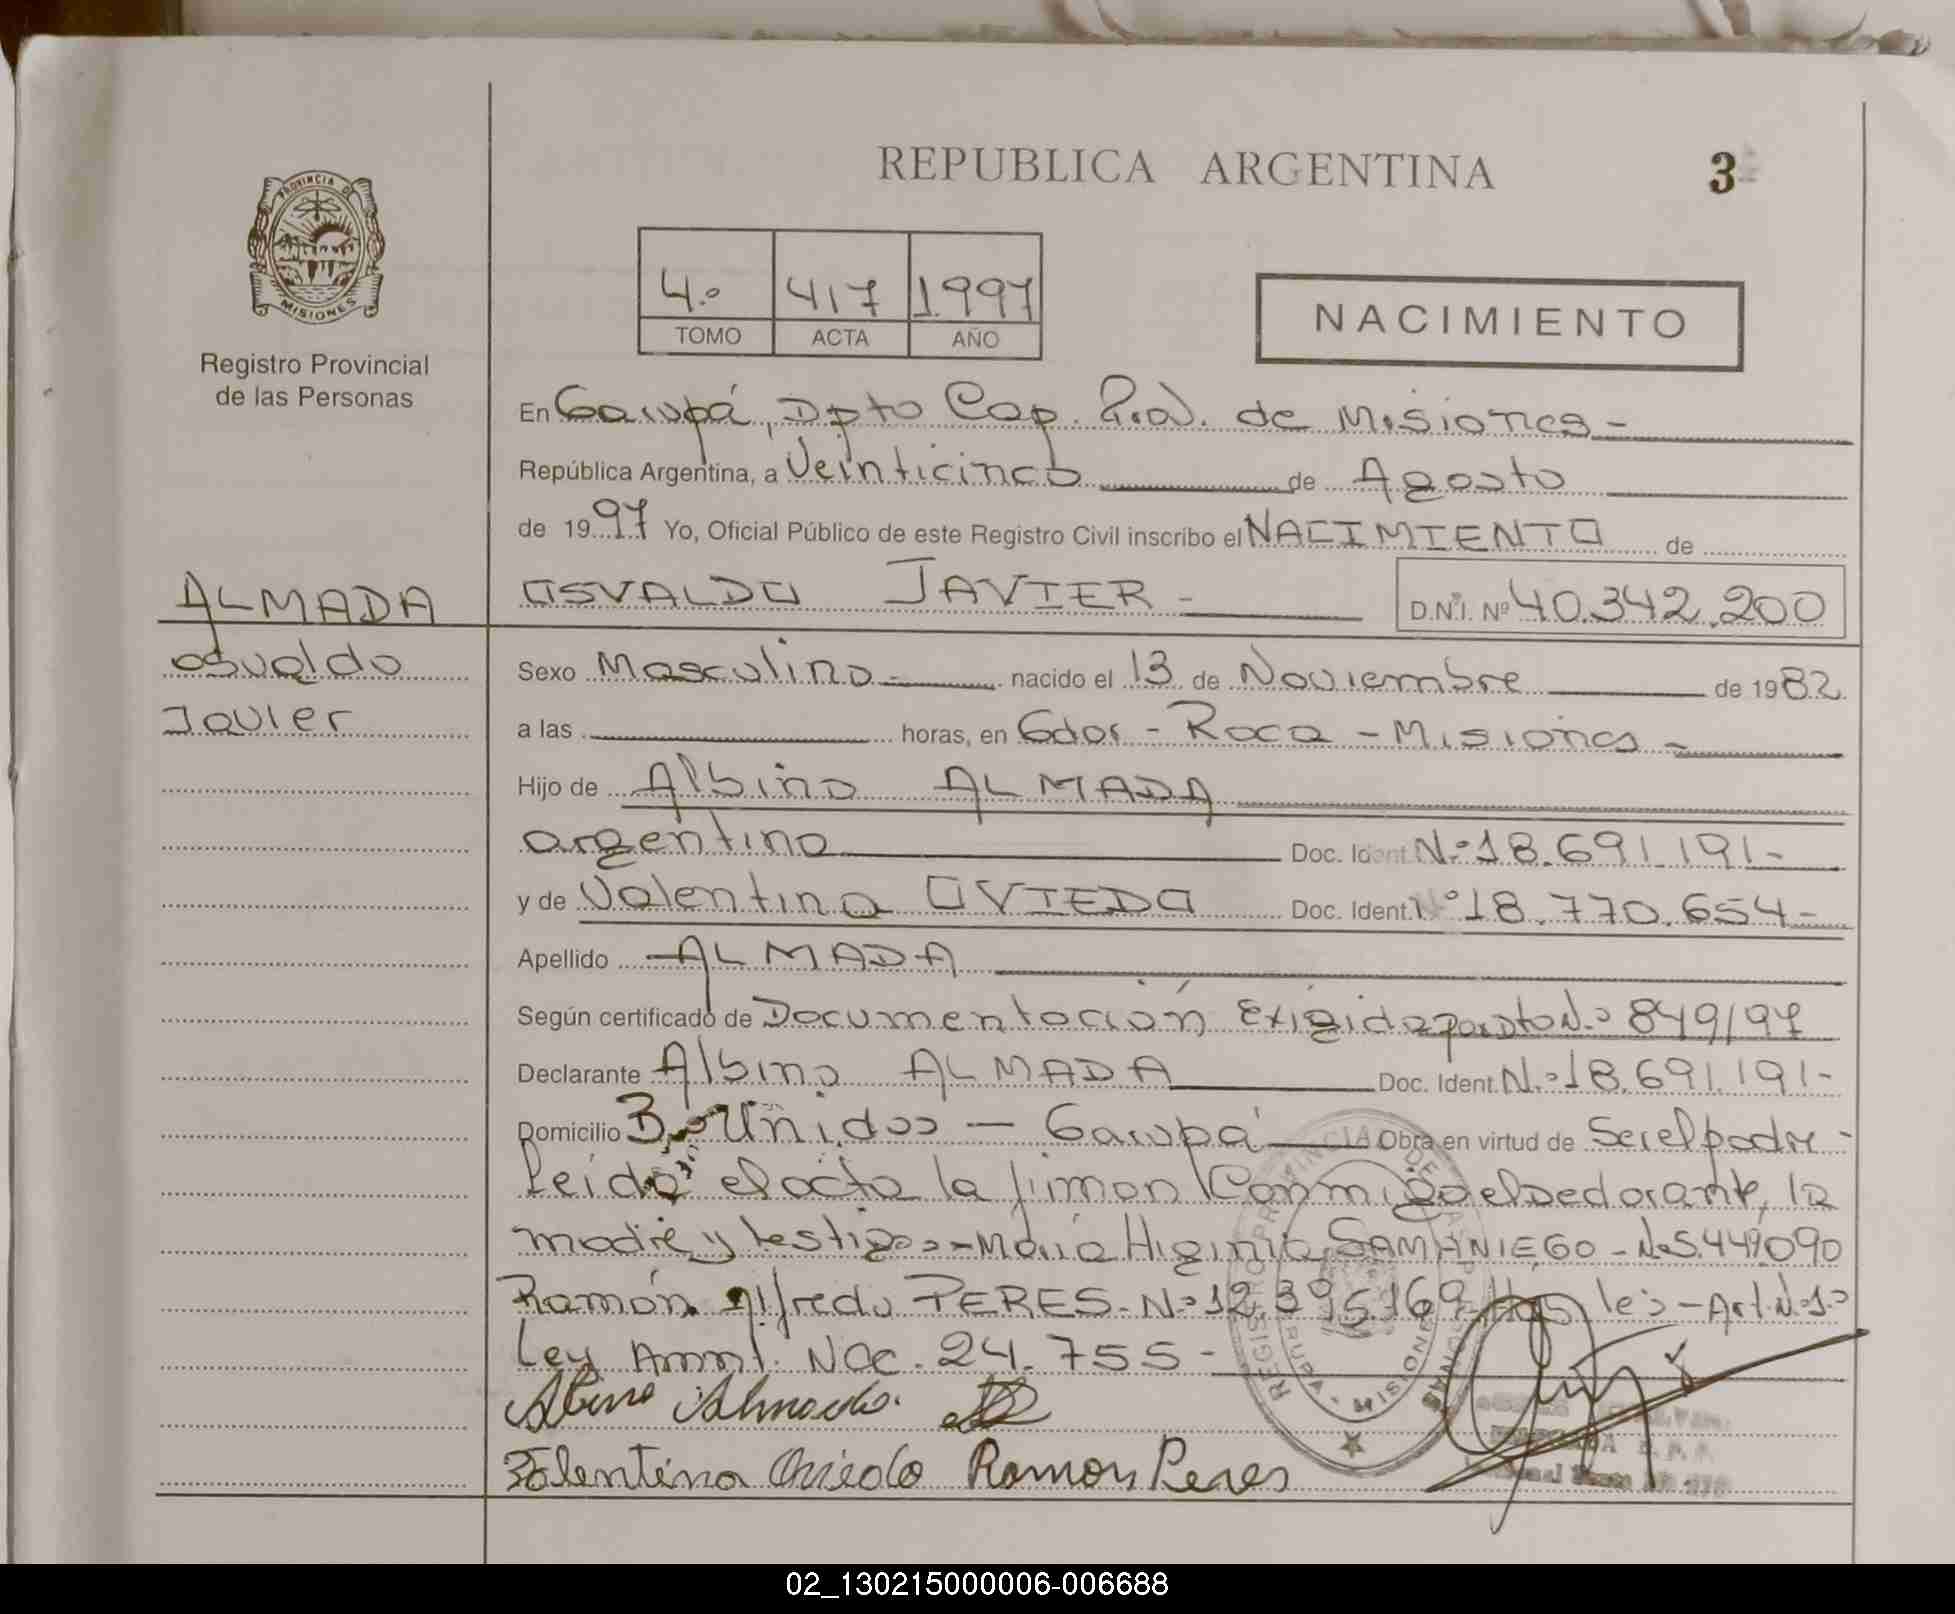 REPUBLICA ARGENTINA
3
PROVINCIA DE
MISIONES
Registro Provincial
de las Personas
4.º 417 1.997
TOMO ACTA AÑO
NACIMIENTO
En Garupá, Dpto Cap. Prov. de Misiones -
República Argentina, a Veinticinco de Agosto
de 19 97 Yo, Oficial Público de este Registro Civil inscribo el NACIMIENTO de
ALMADA
OSVALDO JAVIER - D.N.I. Nº 40.342.200
Osvaldo
Javier
Sexo Masculino - nacido el 13 de Noviembre de 1982
a las horas, en Gdor - Roca - Misiones -
Hijo de Albino ALMADA
argentino Doc. Ident. N.º 18.691.191-
y de Valentina OVIEDO Doc. Ident. Nº 18.770.654-
Apellido ALMADA
Según certificado de Documentación Exigida por Dto N.º 849/97
Declarante Albino ALMADA Doc. Ident. N.º 18.691.191-
Domicilio Bº Unidos - Garupá Obra en virtud de Ser el padre -
Leída el acta la firman Conmigo el declarante, la
madre y testigos - María Higinia SAMANIEGO - Nº 5.449.090
Ramón Alfredo PERES - N.º 12.395.169 - Art. N.º 1.º
Ley Amnt. Nac. 24.755 -
Albino Almada.
Valentina Oviedo Ramon Peres
02_130215000006-006688